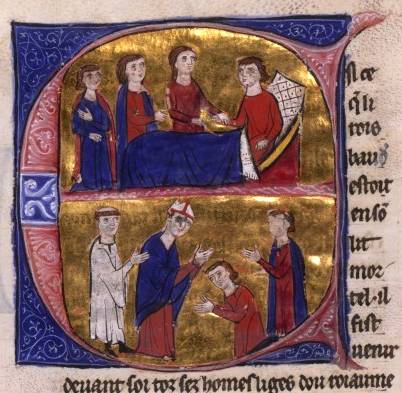 si ce
q̃ li
rois
baud
estoit
en sõ
lit
mor
tel · il
fist
uenir
deuant soi toz sez homes liges dou roiaume